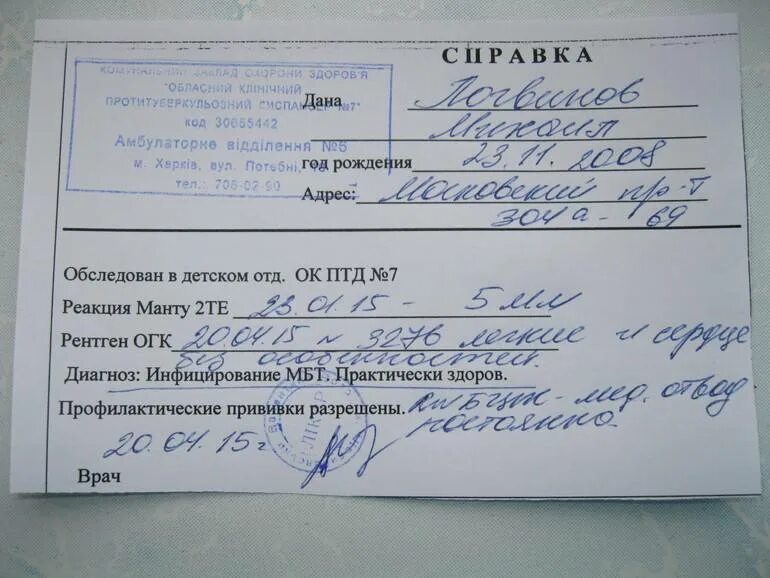 СПРАВКА
КОМУНАЛЬНИЙ ЗАКЛАД ОХОРОНИ ЗДОРОВ'Я
"ОБЛАСНИЙ КЛІНІЧНИЙ
ПРОТИТУБЕРКУЛЬОЗНИЙ ДИСПАНСЕР №7"
код 30655442
Амбулаторне відділення №6
м. Харків, вул. Потебні,
тел.: 706-02-90
Дана Логвинов
Михаил
год рождения 23.11.2008
Адрес: Московский пр-т
304а - 69
Обследован в детском отд. ОК ПТД №7
Реакция Манту 2ТЕ 23.01.15 - 5 мм
Рентген ОГК 20.04.15 N 3276 легкие и сердце
без особенностей.
Диагноз: Инфицирование МБТ. Практически здоров.
Профилактические прививки разрешены. БЦЖ - мед. отвод
постоянно.
20.04.15г
ЛІКАР
Врач